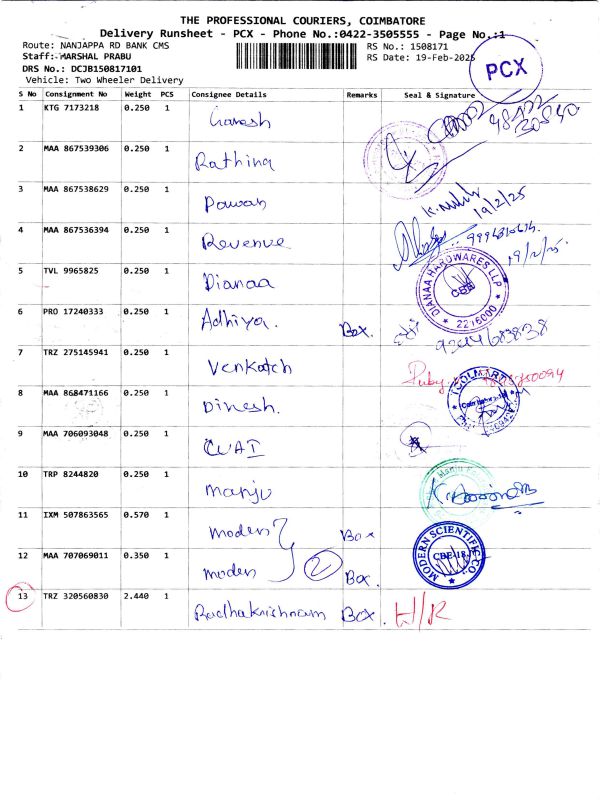 THE PROFESSIONAL COURIERS, COIMBATORE
Delivery Runsheet - PCX - Phone No.:0422-3505555 - Page No.:1
Route: NANJAPPA RD BANK CMS
RS No.: 1508171
Staff: MARSHAL PRABU
RS Date: 19-Feb-2025
PCX
DRS No.: DCJB150817101
Vehicle: Two Wheeler Delivery
S No Consignment No Weight PCS Consignee Details Remarks Seal & Signature
1 KTG 7173218 0.250 1 Ganesh
2 MAA 867539306 0.250 1 Rathina
3 MAA 867538629 0.250 1 Pawan 19/2/25
4 MAA 867536394 0.250 1 Revenue
5 TVL 9965825 0.250 1 Dianaa DIANAA HARDWARES LLP CBE 2216000
6 PRO 17240333 0.250 1 Adhiya. Box.
7 TRZ 275145941 0.250 1 Venkatch Ruby
8 MAA 868471166 0.250 1 Dinesh. TOOLMART
9 MAA 706093048 0.250 1 CUAI
10 TRP 8244820 0.250 1 Manju
11 IXM 507863565 0.570 1 Moden Box
12 MAA 707069011 0.350 1 Moden 2 Box. MODERN SCIENTIFIC CO. CBE-18
13 TRZ 320560830 2.440 1 Radhakrishnam Box. H/R